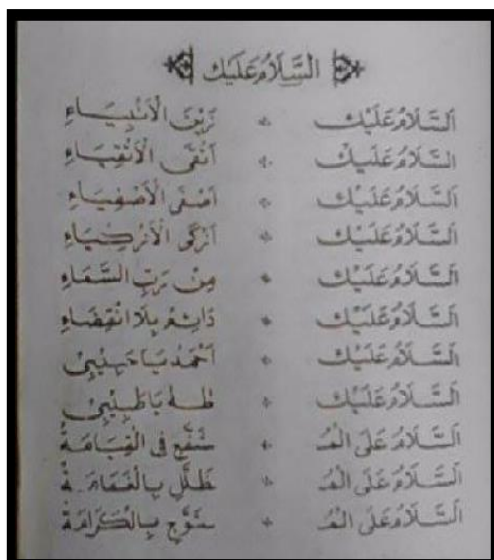 اَلسَّلَامُ عَلَيْكَ
اَلسَّلَامُ عَلَيْكَ زَيْنَ الْاَنْبِيَاءِ
اَلسَّلَامُ عَلَيْكَ اَتْقَى الْاَتْقِيَاءِ
اَلسَّلَامُ عَلَيْكَ اَصْفَى الْاَصْفِيَاءِ
اَلسَّلَامُ عَلَيْكَ اَزْكَى الْاَزْكِيَاءِ
اَلسَّلَامُ عَلَيْكَ مِنْ رَبِّ السَّمَاءِ
اَلسَّلَامُ عَلَيْكَ دَائِمُ بِلَا انْقِضَاءِ
اَلسَّلَامُ عَلَيْكَ اَحْمَدُ يَا حَبِيْبِىْ
اَلسَّلَامُ عَلَيْكَ طٰهٰ يَا طَبِيْبِىْ
اَلسَّلَامُ عَلَى الْمُ شَفَّعِ فِى الْقِيَامَةْ
اَلسَّلَامُ عَلَى الْمُ ظَلَّلِ بِالْغَمَامَةْ
اَلسَّلَامُ عَلَى الْمُ تَوَّجِ بِالْكَرَامَةْ